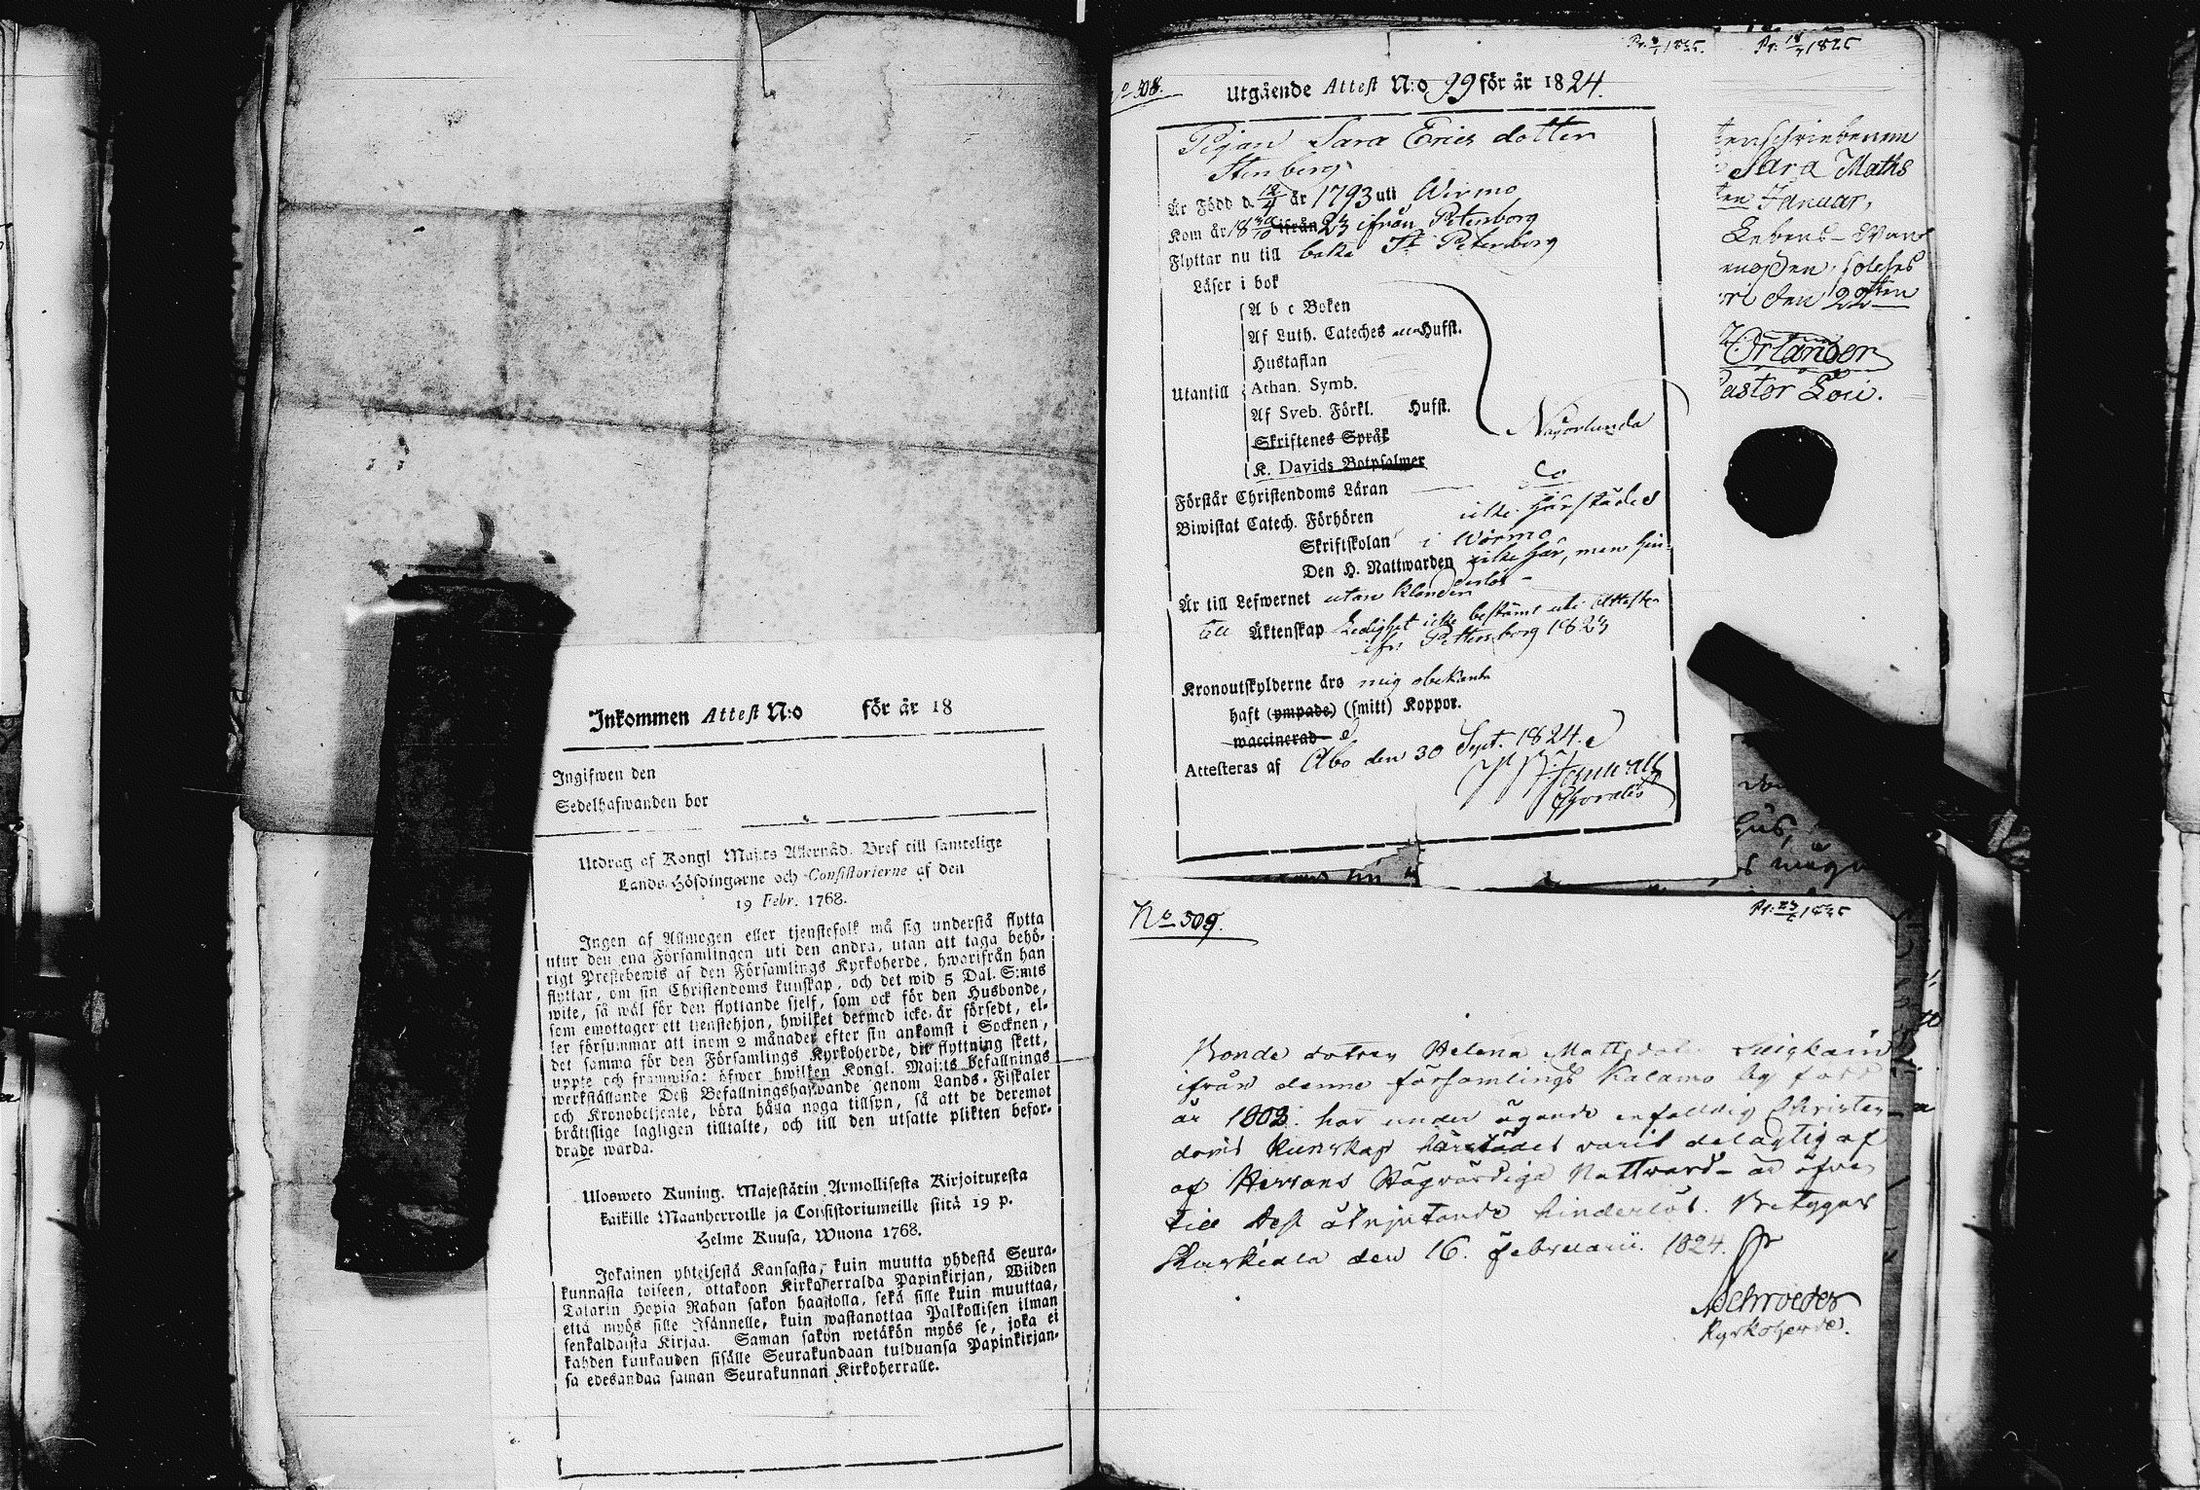 Inkommen Attest N:o för år 18
Ingifwen den
Sedelhafwanden bor
Utdrag af Kongl Maj:ts Allernåd. Bref till samtelige
Lands-Höfdingarne och Consistorierne af den
19 Febr. 1768.
Ingen af Allmogen eller tjenstefolk må sig understå flytta
utur den ena Församlingen uti den andra, utan att taga behö-
rigt Prestebewis af den Församlings Kyrkoherde, hwarifrån han
flyttar, om sin Christendoms kunskap, och det wid 5 Dal. S:mts
wite, så wäl för den flyttande sjelf, som ock för den Husbonde,
som emottager ett tjenstehjon, hwilket dermed icke är försedt, el-
ler försummar att inom 2 månader efter sin ankomst i Socknen,
det samma för den Församlings Kyrkoherde, dit flyttning skett,
uppte och framwisa: öfwer hwilken Kongl. Maj:ts befallnings
werkställande Deß Befallningshafwande genom Lands-Fiskaler
och Kronobetjente, böra hålla noga tillsyn, så att de deremot
bråttslige lagligen tilltalte, och till den utsatte plikten befor-
drade warda.
Ulosweto Kuning. Majestätin Armollisesta Kirjoituxesta
kaikille Maanherroille ja Consistoriumeille siitä 19 p.
Helme Kuusa, Wuona 1768.
Jokainen yhteisestä Kansasta, kuin muutta yhdestä Seura-
kunnasta toiseen, ottakoon Kirkoherralda Papinkirjan, Wiiden
Talarin Hopia Rahan sakon haastolla, sekä sille kuin muuttaa,
että myös sille Isännelle, kuin wastanottaa Palkollisen ilman
senkaldaista Kirjaa. Saman sakon wetäkön myös se, joka ei
kahden kuukauden sisälle Seurakundaan tulduansa Papinkirjan-
sa edesandaa saman Seurakunnan Kirkoherralle.
No 508.
Utgående Attest N:o 99 för år 1824.
Pigan Sara Erics dotter
Stenberg
Är Född d. 12/4 år 1793 uti Wirmo
Kom år 18 30/10 ifrån 23 ifrån Petersborg
Flyttar nu till baka St Petersborg
Läser i bok
A b c Boken
Af Luth. Cateches Hufst.
Hustaflan
Utantill Athan. Symb.
Af Sveb. Förkl. Hufst.
Skriftenes Språk
K. Davids Botpsalmer
Förstår Christendoms Läran
Biwistat Catech. Förhören icke härstädes
Skriftskolan i Wirmo
Den H. Nattwarden icke här, men
Är till Lefwernet utan klander
till Äktenskap Ledighet icke bestämt uti Attesten
ifrn Petersborg 1823
Kronoutskylderne äro mig obekant
haft (ympade) (smitt) Koppor.
waccinerad
Attesteras af Åbo den 30 Sept. 1824.
Pr. 18/7 1825
Sara Maths
ten Januar,
Lebens-Wan
den 22ten
Orlander
Pastor Loci.
No 509.
Pr: 23/ 1825
Bonde dotren Helena Matts
ifrån denne församlings Kalamo by född
år 1803. har under ägande enfaldig Christen-
doms kunskap härstädes varit delagtig af
af Herrans Högvärdiga Nattvard är äfven
till dess åtnjutande hinderlös. Betygas
den 16. Februarii. 1824.
Schroeder
Kyrkoherde.